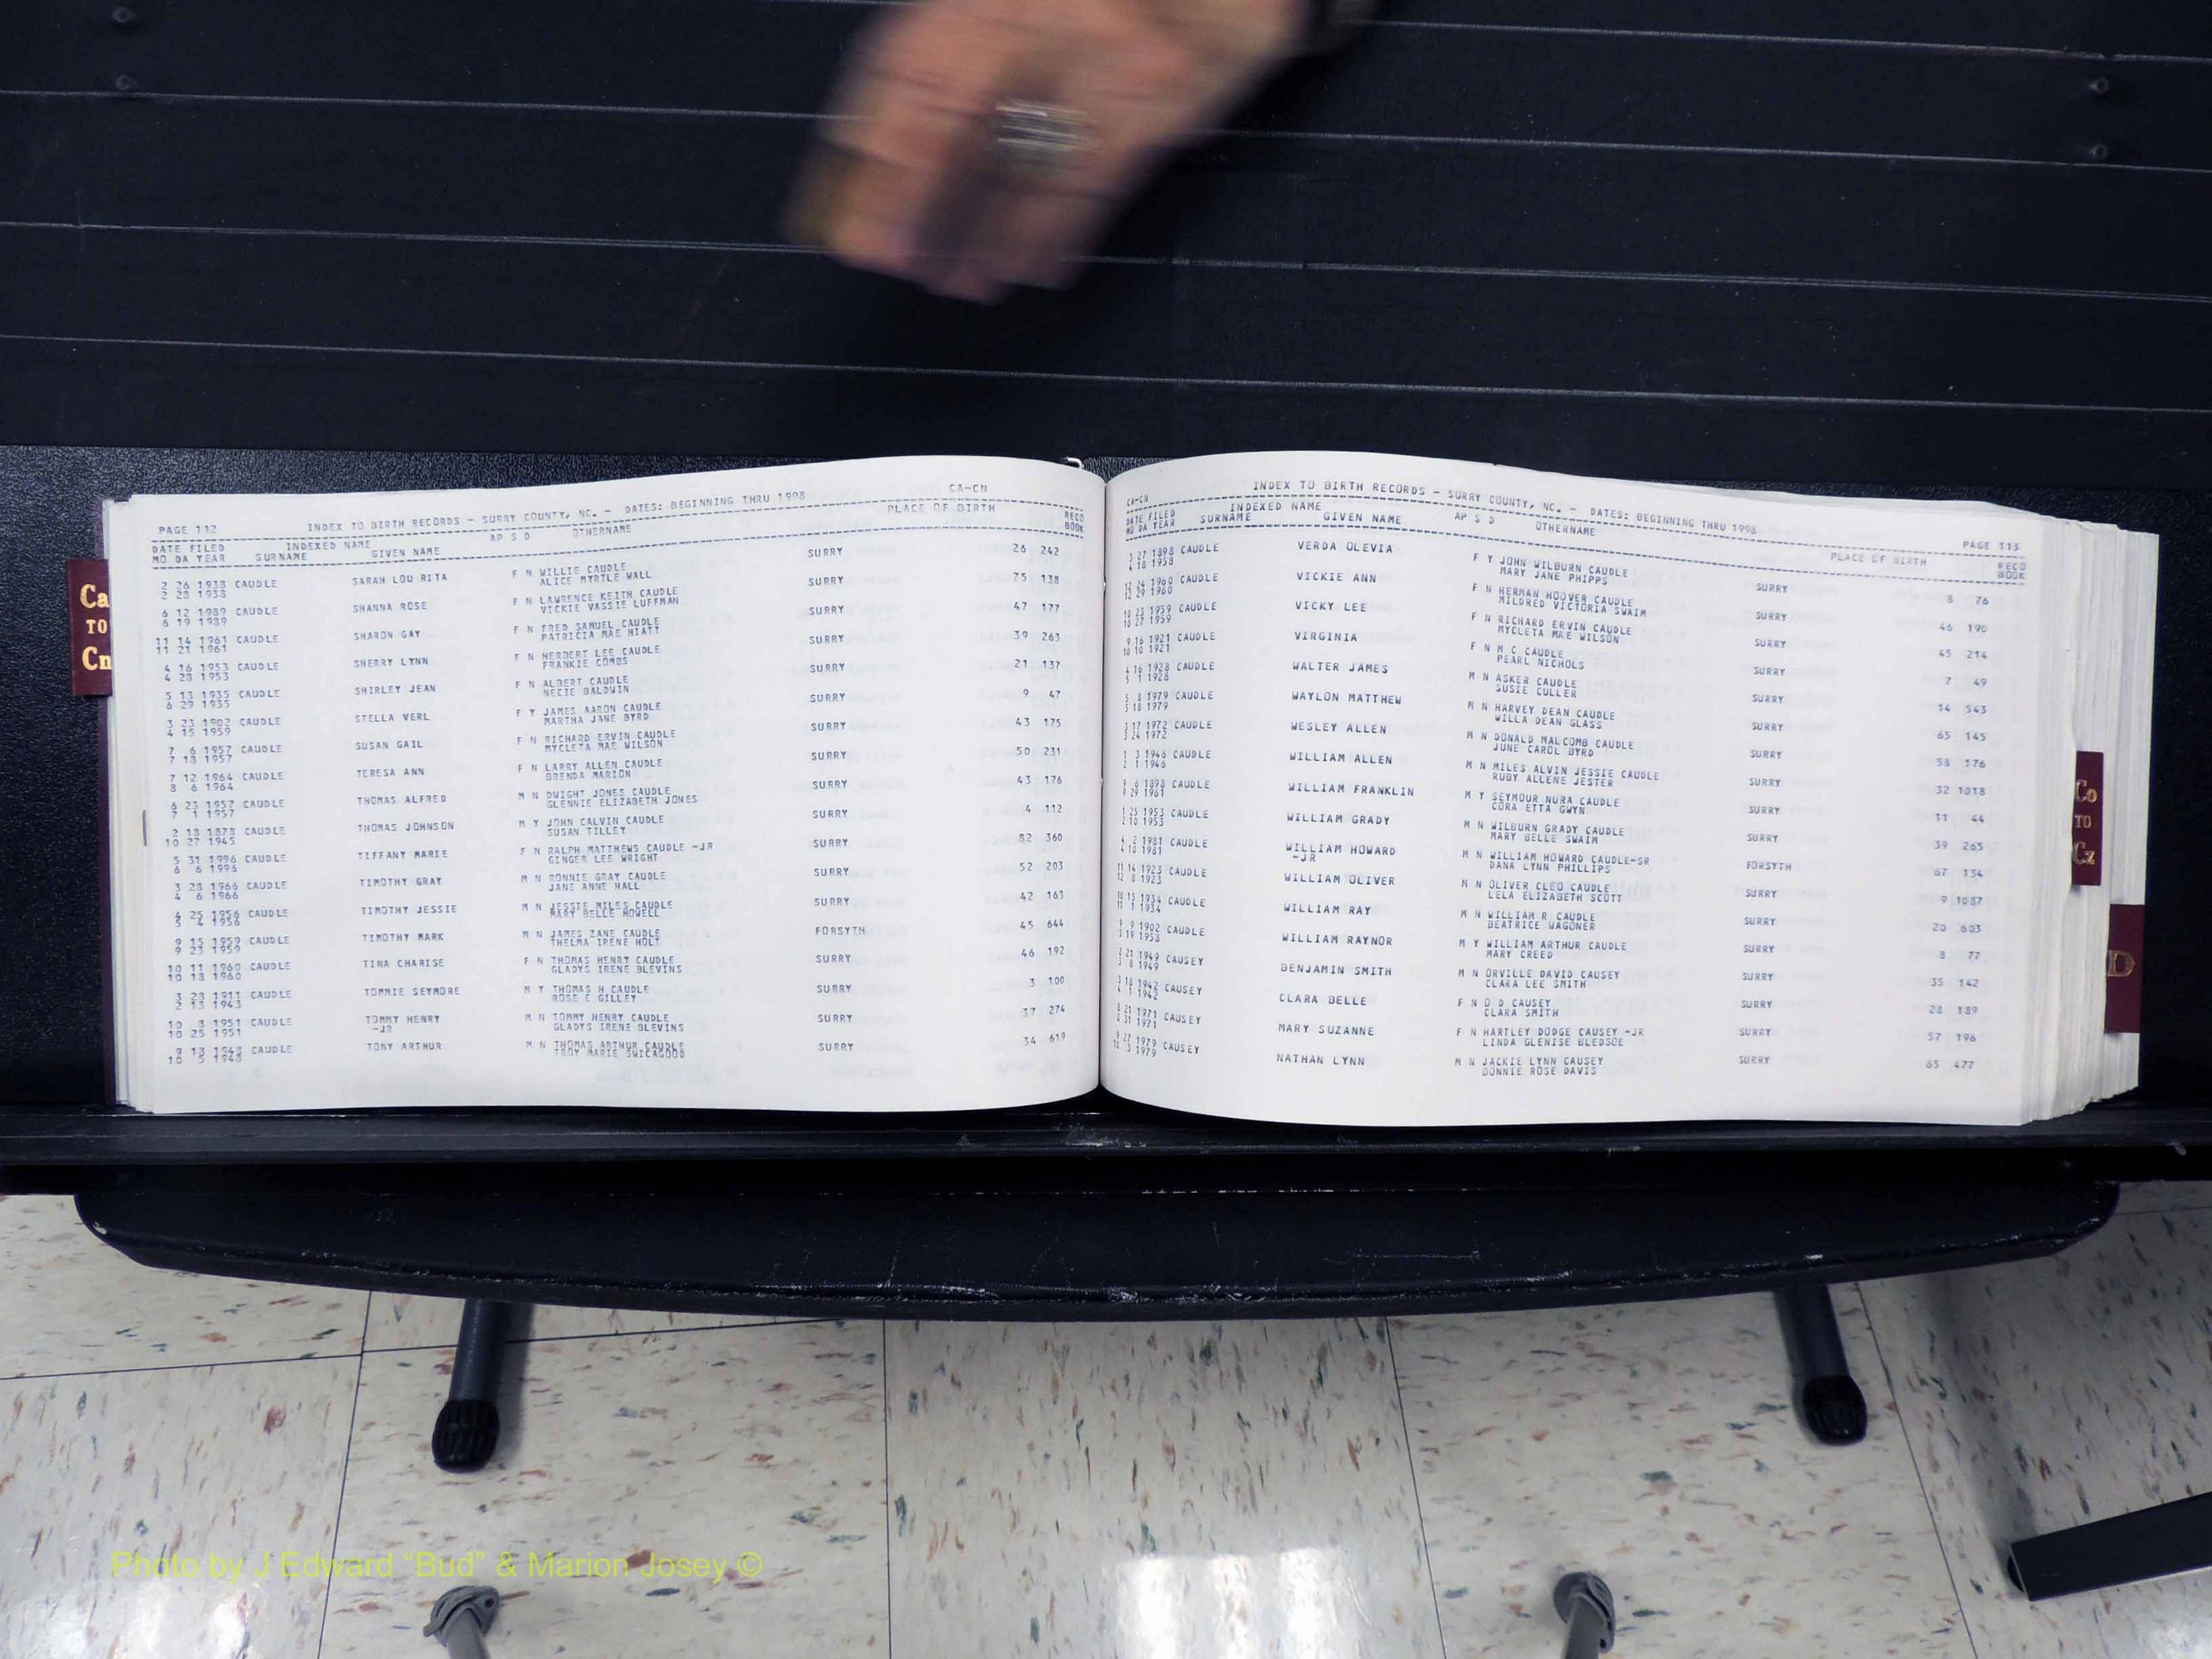 Ca
TO
Cn
PAGE 112 INDEX TO BIRTH RECORDS - SURRY COUNTY, NC. - DATES: BEGINNING THRU 1998 CA-CN
DATE FILED INDEXED NAME AP S D OTHERNAME PLACE OF BIRTH RECO
MO DA YEAR SURNAME GIVEN NAME BOOK
2 26 1938 CAUDLE SARAH LOU RITA F N WILLIE CAUDLE SURRY 26 242
2 28 1938 ALICE MYRTLE WALL
6 12 1989 CAUDLE SHANNA ROSE F N LAWRENCE KEITH CAUDLE SURRY 75 138
6 19 1989 VICKIE VASSIE LUFFMAN
11 14 1961 CAUDLE SHARON GAY F N FRED SAMUEL CAUDLE SURRY 47 177
11 21 1961 PATRICIA MAE HIATT
4 16 1953 CAUDLE SHERRY LYNN F N HERBERT LEE CAUDLE SURRY 39 263
4 28 1953 FRANKIE COMBS
5 13 1935 CAUDLE SHIRLEY JEAN F N ALBERT CAUDLE SURRY 21 137
6 29 1935 NECIE BALDWIN
3 23 1902 CAUDLE STELLA VERL F Y JAMES AARON CAUDLE SURRY 9 47
4 15 1959 MARTHA JANE BYRD
7 6 1957 CAUDLE SUSAN GAIL F N RICHARD ERVIN CAUDLE SURRY 43 175
7 18 1957 MYCLETA MAE WILSON
7 12 1964 CAUDLE TERESA ANN F N LARRY ALLEN CAUDLE SURRY 50 231
8 6 1964 BRENDA MARION
6 23 1957 CAUDLE THOMAS ALFRED M N DWIGHT JONES CAUDLE SURRY 43 176
7 1 1957 GLENNIE ELIZABETH JONES
2 18 1878 CAUDLE THOMAS JOHNSON M Y JOHN CALVIN CAUDLE SURRY 4 112
10 27 1945 SUSAN TILLEY
5 31 1996 CAUDLE TIFFANY MARIE F N RALPH MATTHEWS CAUDLE -JR SURRY 82 360
6 6 1996 GINGER LEE WRIGHT
3 28 1966 CAUDLE TIMOTHY GRAY M N RONNIE GRAY CAUDLE SURRY 52 203
4 6 1966 JANE ANNE HALL
4 25 1956 CAUDLE TIMOTHY JESSIE M N JESSIE MILES CAUDLE SURRY 42 163
5 4 1956 MARY BELLE HOWELL
9 15 1959 CAUDLE TIMOTHY MARK M N JAMES ZANE CAUDLE FORSYTH 45 644
9 23 1959 THELMA IRENE HOLT
10 11 1960 CAUDLE TINA CHARISE F N THOMAS HENRY CAUDLE SURRY 46 192
10 18 1960 GLADYS IRENE BLEVINS
3 23 1911 CAUDLE TOMMIE SEYMORE M Y THOMAS H CAUDLE SURRY 3 100
2 13 1943 ROSE E GILLEY
10 8 1951 CAUDLE TOMMY HENRY M N TOMMY HENRY CAUDLE SURRY 37 274
10 25 1951 -JR GLADYS IRENE BLEVINS
9 18 1948 CAUDLE TONY ARTHUR M N THOMAS ARTHUR CAUDLE SURRY 34 619
10 5 1948 TROY MARIE SWICAGOOD
CA-CN INDEX TO BIRTH RECORDS - SURRY COUNTY, NC. - DATES: BEGINNING THRU 1998 PAGE 113
DATE FILED INDEXED NAME AP S D OTHERNAME PLACE OF BIRTH RECO
MO DA YEAR SURNAME GIVEN NAME BOOK
3 27 1898 CAUDLE VERDA OLEVIA F Y JOHN WILBURN CAUDLE SURRY 8 76
4 18 1958 MARY JANE PHIPPS
12 24 1960 CAUDLE VICKIE ANN F N HERMAN HOOVER CAUDLE SURRY 46 190
12 29 1960 MILDRED VICTORIA SWAIM
10 23 1959 CAUDLE VICKY LEE F N RICHARD ERVIN CAUDLE SURRY 45 214
10 27 1959 MYCLETA MAE WILSON
9 16 1921 CAUDLE VIRGINIA F N M C CAUDLE SURRY 7 49
10 10 1921 PEARL NICHOLS
4 16 1928 CAUDLE WALTER JAMES M N ASKER CAUDLE SURRY 14 543
5 1 1928 SUSIE CULLER
5 8 1979 CAUDLE WAYLON MATTHEW M N HARVEY DEAN CAUDLE SURRY 65 145
5 18 1979 WILLA DEAN GLASS
3 17 1972 CAUDLE WESLEY ALLEN M N DONALD MALCOMB CAUDLE SURRY 58 176
3 24 1972 JUNE CAROL BYRD
1 3 1946 CAUDLE WILLIAM ALLEN M N MILES ALVIN JESSIE CAUDLE SURRY 32 1018
2 1 1946 RUBY ALLENE JESTER
9 6 1898 CAUDLE WILLIAM FRANKLIN M Y SEYMOUR NURA CAUDLE SURRY 11 44
9 29 1961 CORA ETTA GWYN
1 25 1953 CAUDLE WILLIAM GRADY M N WILBURN GRADY CAUDLE SURRY 39 265
2 10 1953 MARY BELLE SWAIM
4 2 1981 CAUDLE WILLIAM HOWARD M N WILLIAM HOWARD CAUDLE-SR FORSYTH 67 134
4 10 1981 -JR DANA LYNN PHILLIPS
11 14 1923 CAUDLE WILLIAM OLIVER M N OLIVER CLEO CAUDLE SURRY 9 1087
12 8 1923 LELA ELIZABETH SCOTT
10 15 1934 CAUDLE WILLIAM RAY M N WILLIAM R CAUDLE SURRY 20 603
11 1 1934 BEATRICE WAGONER
9 1902 CAUDLE WILLIAM RAYNOR M Y WILLIAM ARTHUR CAUDLE SURRY 8 77
3 19 1958 MARY CREED
2 21 1949 CAUSEY BENJAMIN SMITH M N ORVILLE DAVID CAUSEY SURRY 35 142
3 8 1949 CLARA LEE SMITH
3 18 1942 CAUSEY CLARA BELLE F N O D CAUSEY SURRY 28 189
4 1 1942 CLARA SMITH
8 21 1971 CAUSEY MARY SUZANNE F N HARTLEY DODGE CAUSEY -JR SURRY 57 196
8 31 1971 LINDA GLENISE BLEDSOE
9 27 1979 CAUSEY NATHAN LYNN M N JACKIE LYNN CAUSEY SURRY 65 477
10 3 1979 BONNIE ROSE DAVIS
Co
TO
Cz
D
Photo by J Edward “Bud” & Marion Josey ©